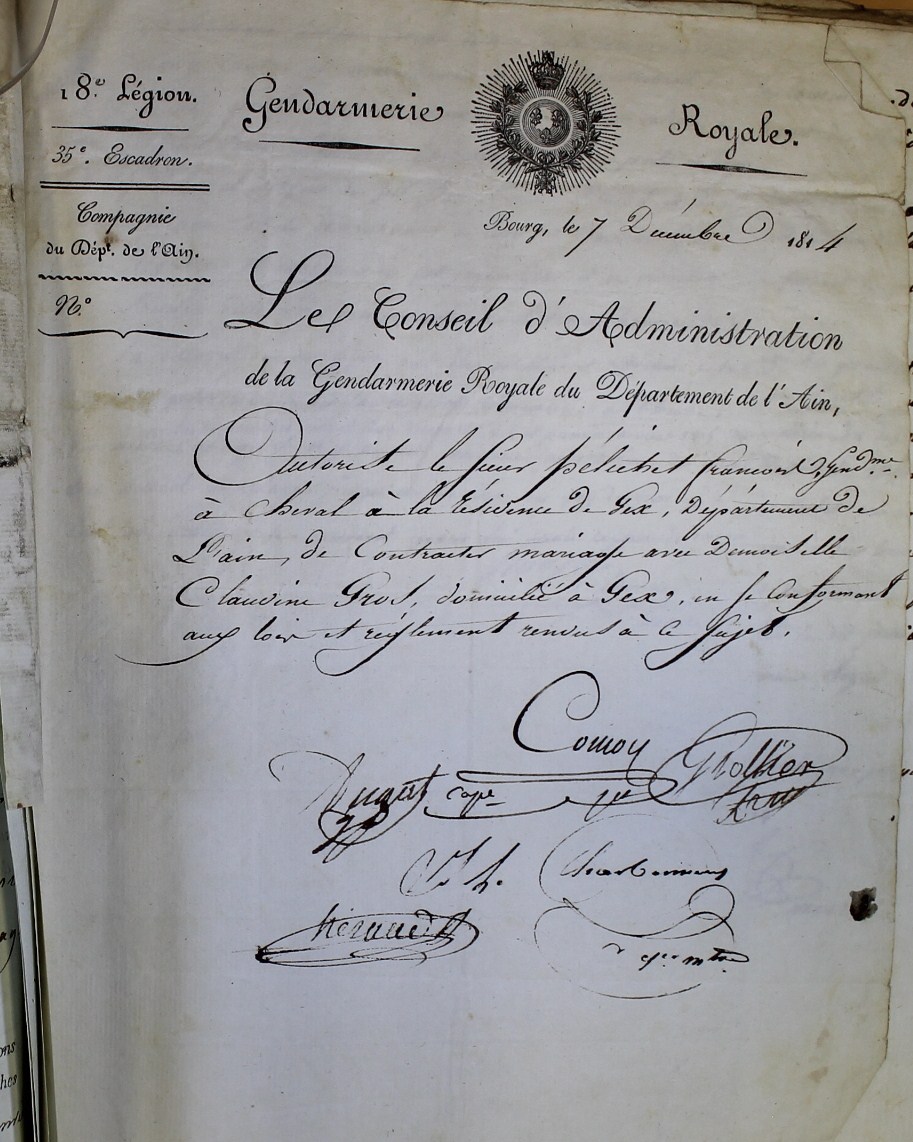 18.e Légion.
Gendarmerie Royale.
35e. Escadron.
Compagnie
du Dépt. de l'Ain.
N.o
Bourg, le 7 Décembre 1814
Le Conseil d'Administration
de la Gendarmerie Royale du Département de l'Ain,
Autorise le sieur péluchet françois, Gendme
à cheval à la résidence de Gex, Département de
L'ain, de Contracter mariage avec Demoiselle
Claudine Gros, domicilié à Gex, en se Conformant
aux loix et réglement rendus à ce sujet.
Comoy
Cape
Ch. Charbonneau
qer mtre